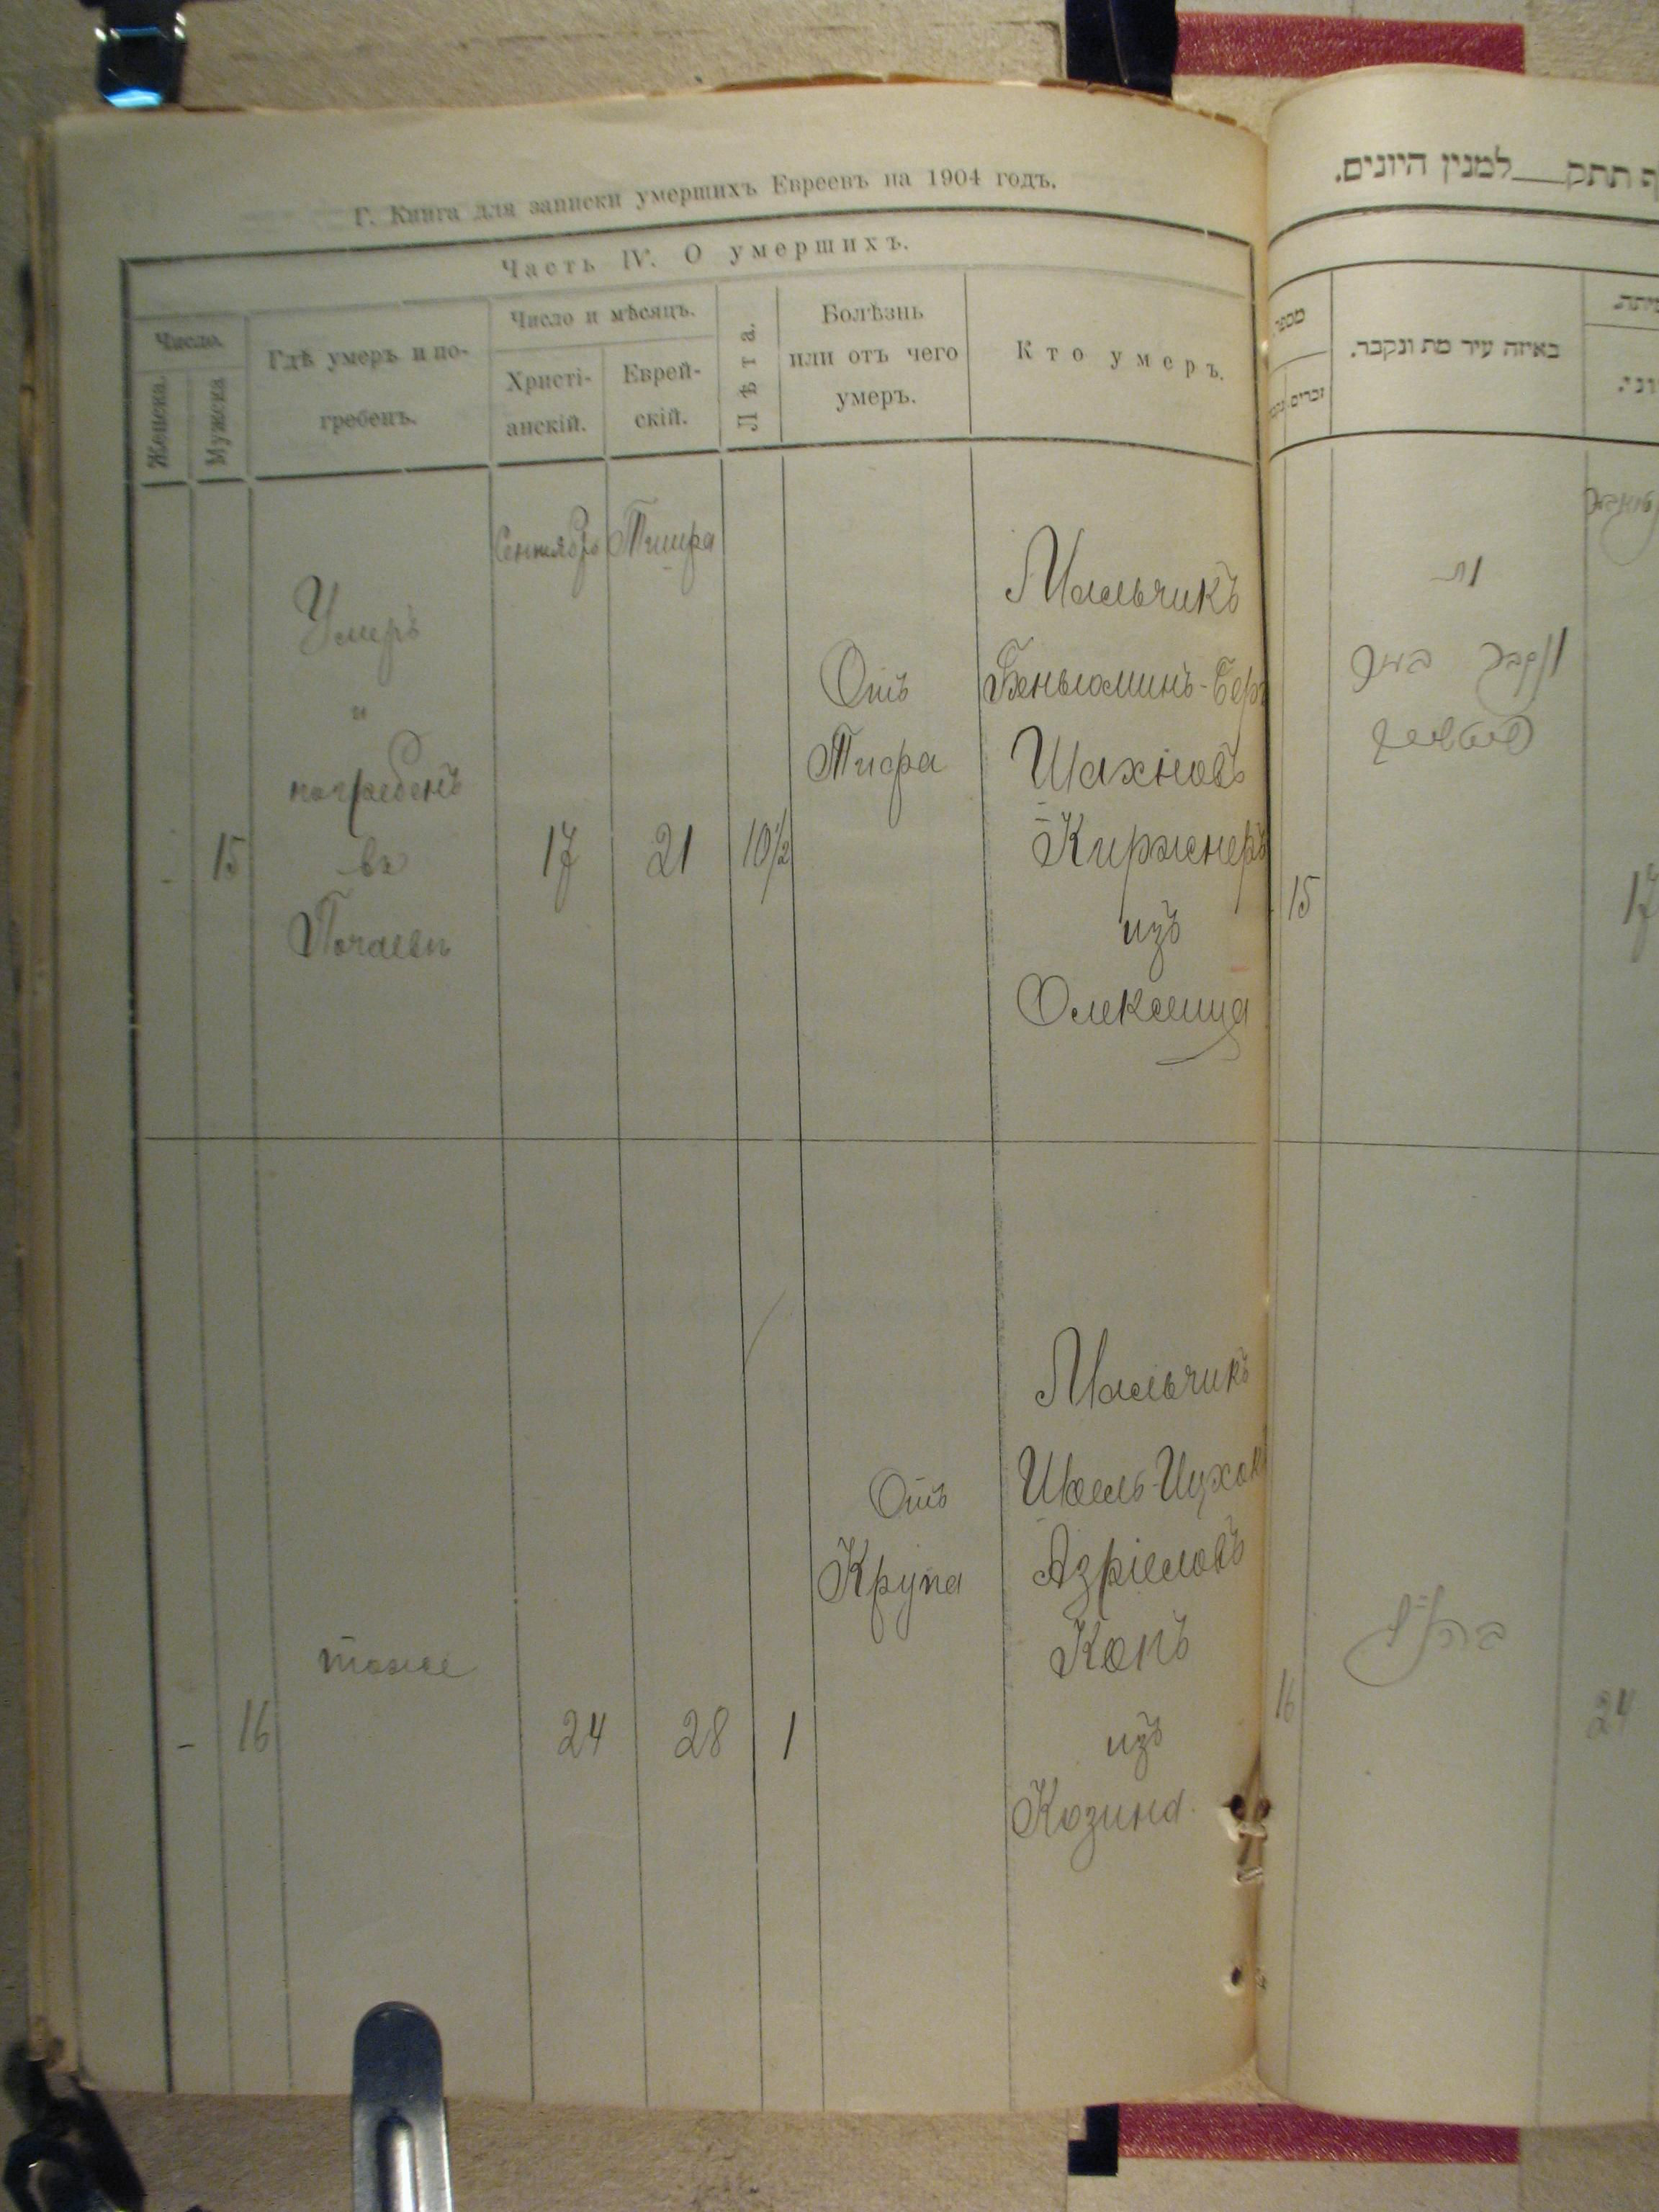 Г. Книга для записки умершихъ Евреевъ на 1904 годъ.
Часть IV. О умершихъ.
Число.
Женска.
Мужска
Гдѣ умеръ и по-
гребенъ.
Число и мѣсяцъ.
Христі-
анскій.
Еврей-
скій.
Лѣта.
Болѣзнь
или отъ чего
умеръ.
Кто умеръ.
Сентябрь
Тишра
-
15
Умеръ
и
погребенъ
въ
Почаевѣ
17
21
10½
Отъ
Тифа
Мальчикъ
Беньюминъ-Беръ
Шахновъ
Киржнеръ
изъ
Олексинца
-
16
тоже
24
28
1
Отъ
Крупа
Мальчикъ
Азріеловъ
изъ
Козина.
תתק___למנין היונים.
מספר
זכרים.
באיזה עיר מת ונקבר.
15
מת
ונקבר בעיר
17
16
24